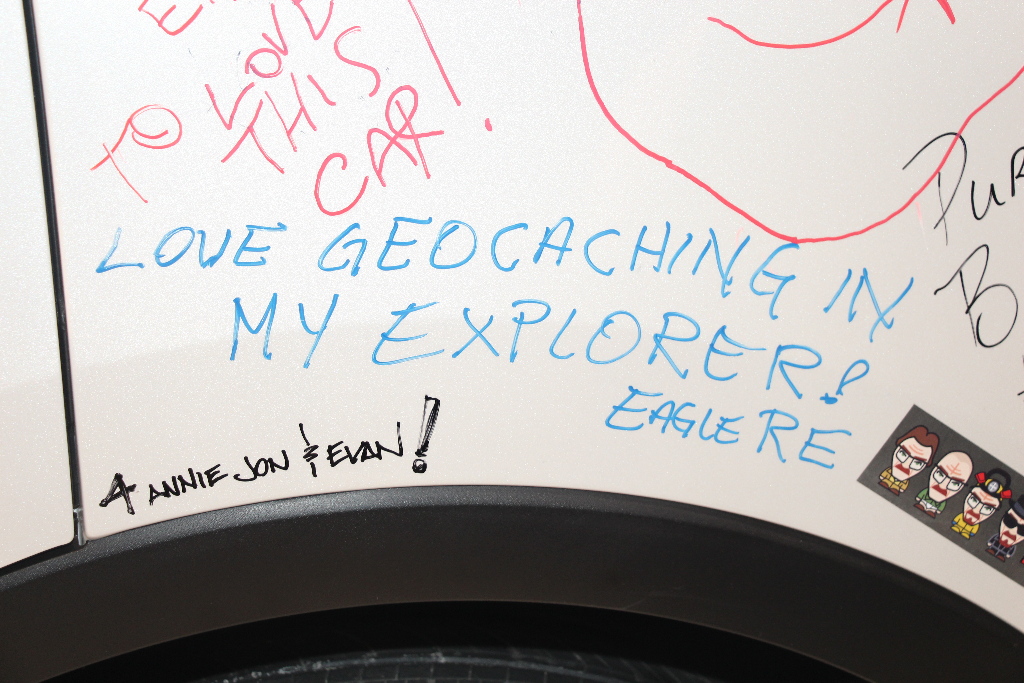 TO LOVE
THIS
CAR!
LOVE GEOCACHING IN
MY EXPLORER!
EAGLE RE
4 ANNIE JON & EVAN!